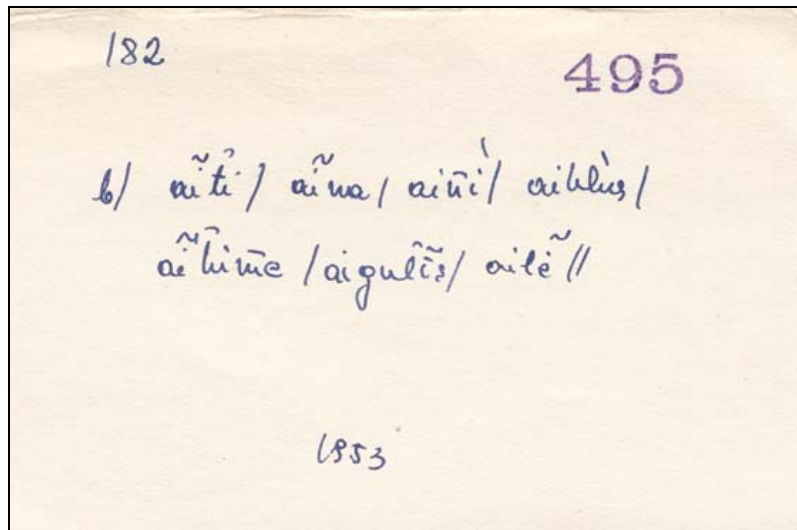 182
495
b/ aĩ ti / aĩna / ainì / aiklùs /
aĩ kime / aigulĩs / ailẽ //
1953